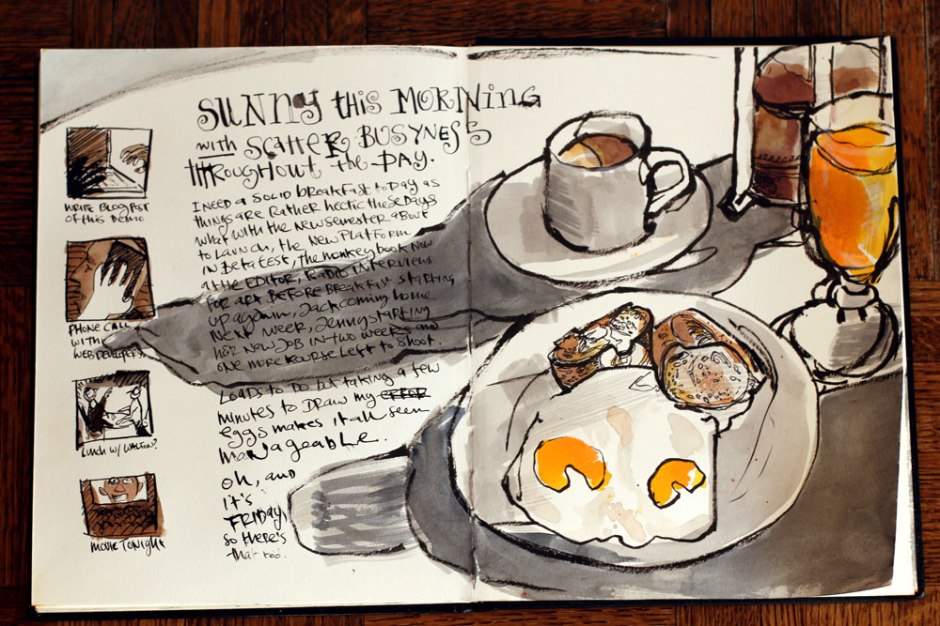 SUNNY this MORNING
with SCATTER BUSYNESS
THROUGHOUT the DAY.
I NEED A SOLID breakfast today as
things are Rather hectic these days
what with the NEW SEMESTER about
to LAUNCH, the NEW PLATFORM
IN Beta test, the monkey book NOW
at the EDITOR, RADIO INTERVIEW
FOR ART BEFORE BREAKFAST STARTING
up again, Jack coming home
NEXT WEEK, Jenny starting
HER NEW JOB IN two WEEKS and
one more Kourse LEFT to SHOOT.
LOADS to DO but taking a few
minutes to DRAW my
eggs makes it all seem
manageable.
oh, and
it's
FRIDAY,
so there's
that too.
WRITE BLOG POST
OF this DEMO
PHONE CALL
WITH
WEB DEVELOPERS
Lunch w/ WALTON?
MOVIE TONIGHT